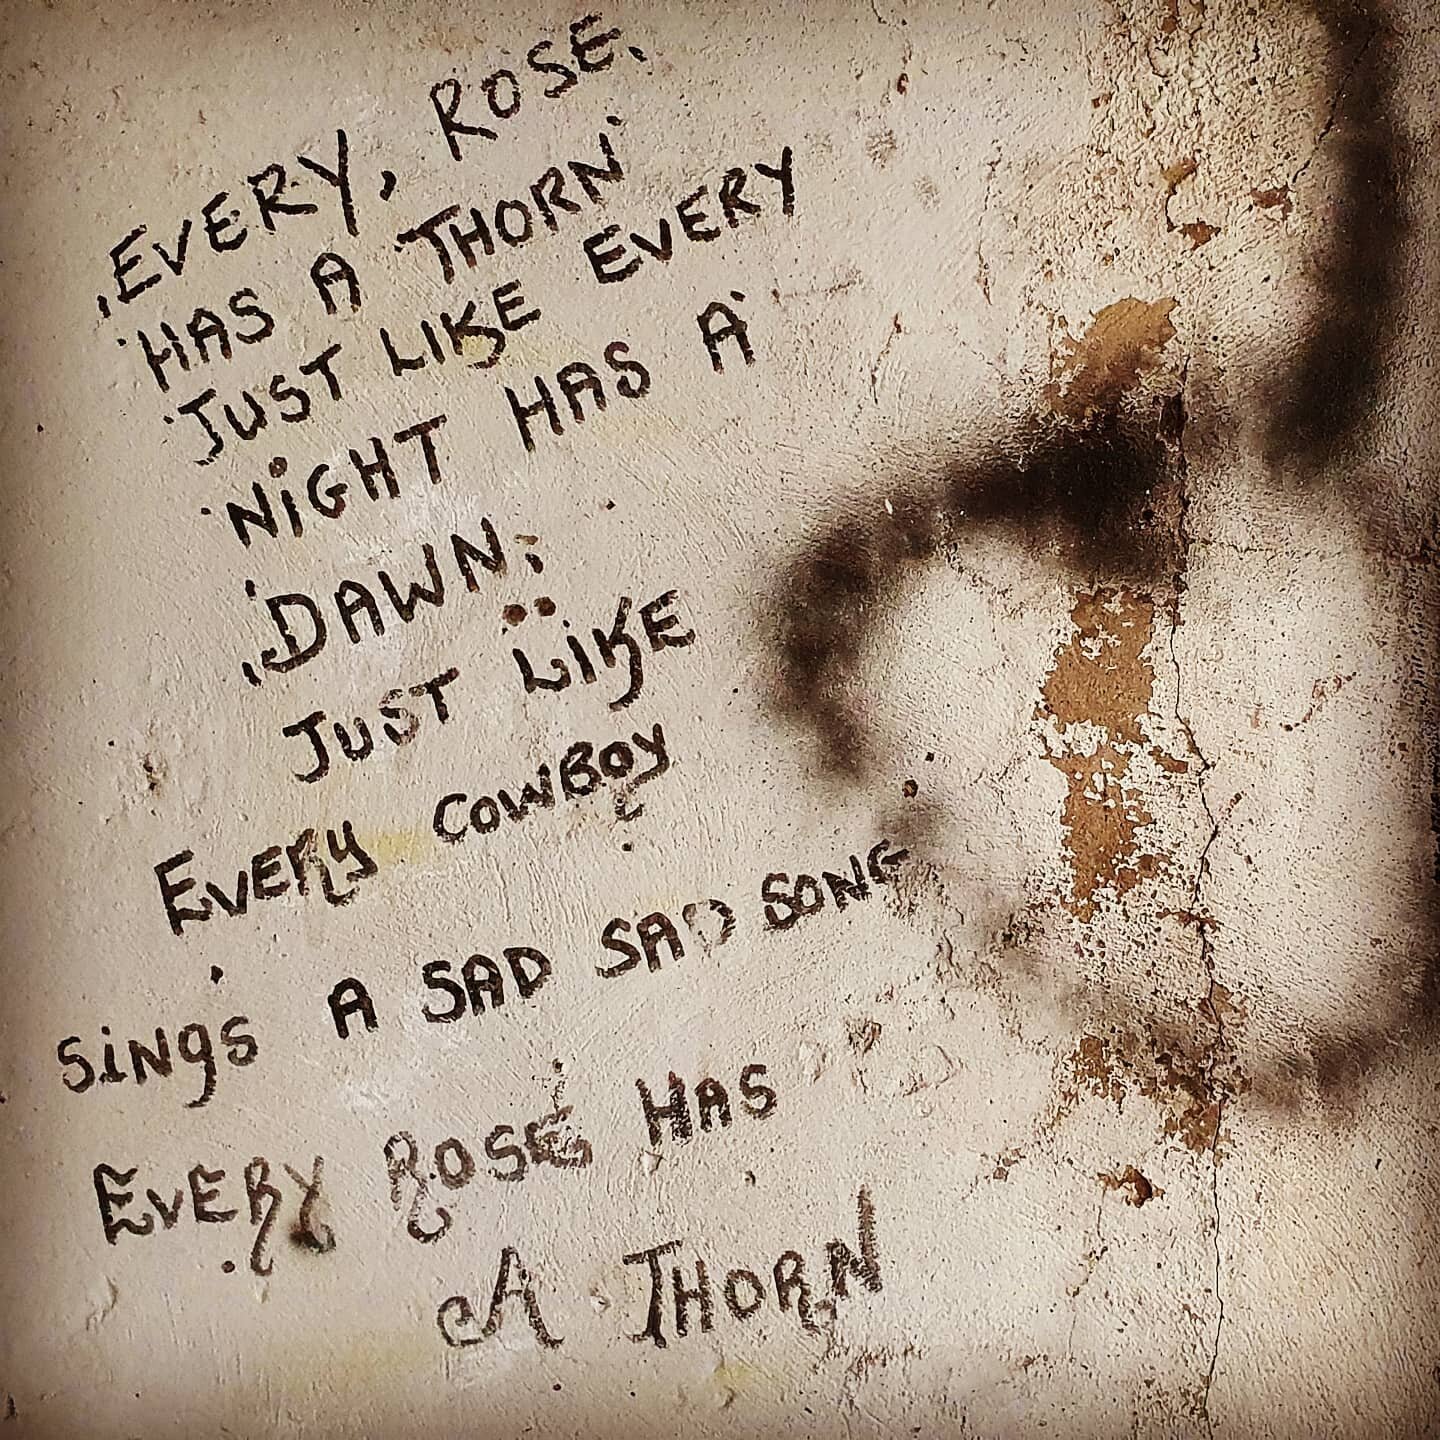 EVERY, ROSE.
HAS A THORN
JUST LIKE EVERY
NIGHT HAS A
DAWN;
JUST LIKE
EVERY COWBOY
SINGS A SAD SAD SONG
EVERY ROSE HAS
A THORN